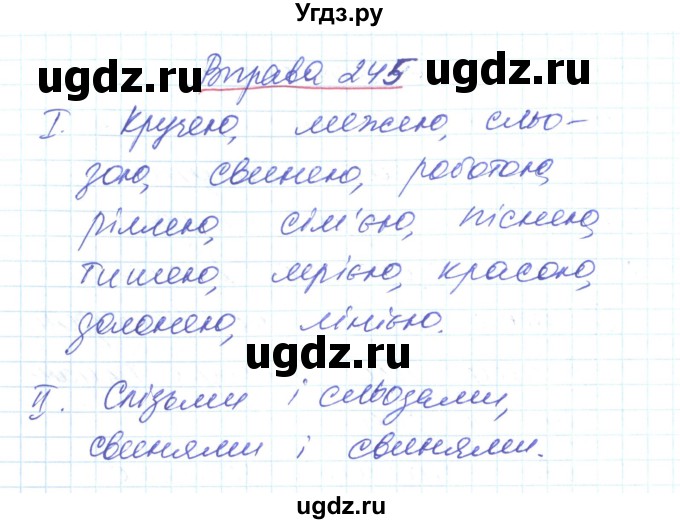 Угдз.ру
ugdz.ru Вправа 245 ugdz.ru
I. Кручею, межею, сльо-
зою, свинею, роботою,
ріллею, сім'єю, піснею,
тишею, мрією, красою,
долонею, лінією.
ugdz.ru
II. Слізьми і сльозами,
свинями і свинями.
ugdz.ru
ugdz.ru